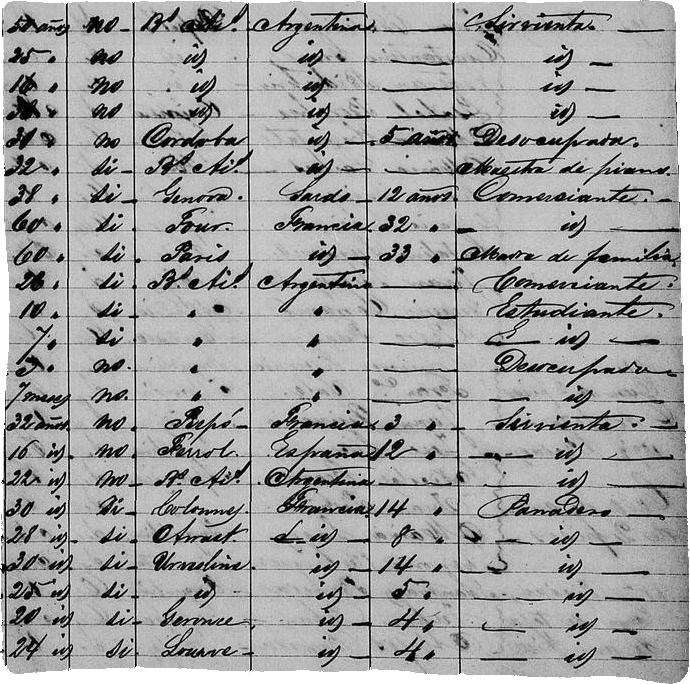 50 años no - Bs Ais Argentina — Sirvienta. —
25 " no id id — — id —
16 " no id id — — id —
no id id — — id —
31 " no Cordoba id — 5 años Desocupada.
32 " si - Bs Ais id — — Maestra de piano
38 " si - Genova. Sardo - 12 años Comerciante. -
60 " si . Four. Francia 32 " — id —
60 " si . Paris id — 33 " Madre de familia
26 " si . Bs Ais Argentina — Comerciante.
10 " si - " " — Estudiante.
7 " si - " " — id —
no. " " — Desocupado -
7 meses no. " " — — id —
32 años no. - Francia 3 " Sirvienta. —
16 id no. Ferrol. España 12 " — id —
22 id no - Bs Ais Argentina — — id —
30 id si - Francia 14 " Panadero —
28 id - si . — id — 8 " — id —
30 id si - id — 14 " — id —
25 id si . id id — 5 " — id —
20 id si - id — 4 " — id —
24 id si . id — 4 " — id —